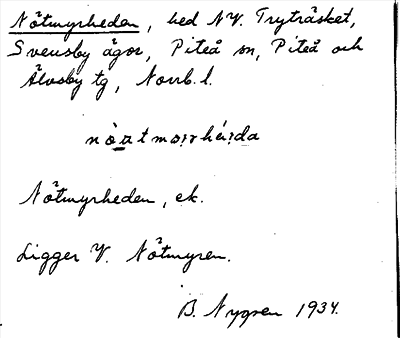 Nötmyrheden, hed NV. Tryträsket,
Svensby ägor, Piteå sn, Piteå och
Älvsby tg, Norrb. l.
Nötmyrheden, ek.
Ligger V. Nötmyren.
B. Nygren 1934.